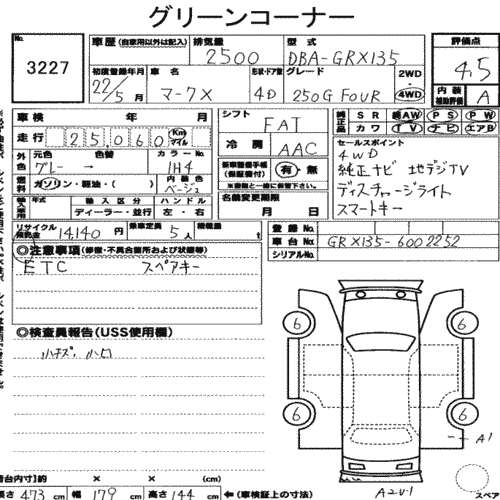 グリーンコーナー
No. 3227
車歴 (自家用以外は記入) 排気量 2500 型式 DBA-GRX135 評価点 4.5
初度登録年月 22/5月 車名 マークX 形状・ドア数 4D グレード 250G FOUR 2WD・4WD 内装補助評価 A
車検 年 月 シフト FAT 純正品 SR 純AW PS PW
走行 25,060 Km マイル カワ TV ナビ エアB
外色 元色 グレー 色替 カラーNo. 1H4 冷房 AAC セールスポイント
4WD
燃料 ガソリン・軽油・( ) 内装色 ベージュ 新車整備手帳(保証書付) 有・無 純正ナビ 地デジTV
※書類と一緒に保管して下さい。 ディスチャージライト
輸入車用 年式 輸入区分 ディーラー・並行 ハンドル 左・右 名義変更期限 月 日 スマートキー
リサイクル預託金 14,140円 乗車定員 5人 積載量 登録No.
車台No. GRX135-6002252
シリアルNo.
◎注意事項(修復・不具合箇所および状態等)
ETC スペアキー
◎検査員報告(USS使用欄)
6 6
6 6
A1
A2U1
スペア
荷台内寸 約 × × (cm)
長さ 473cm 幅 179cm 高さ 144cm ←(車検証上の寸法)